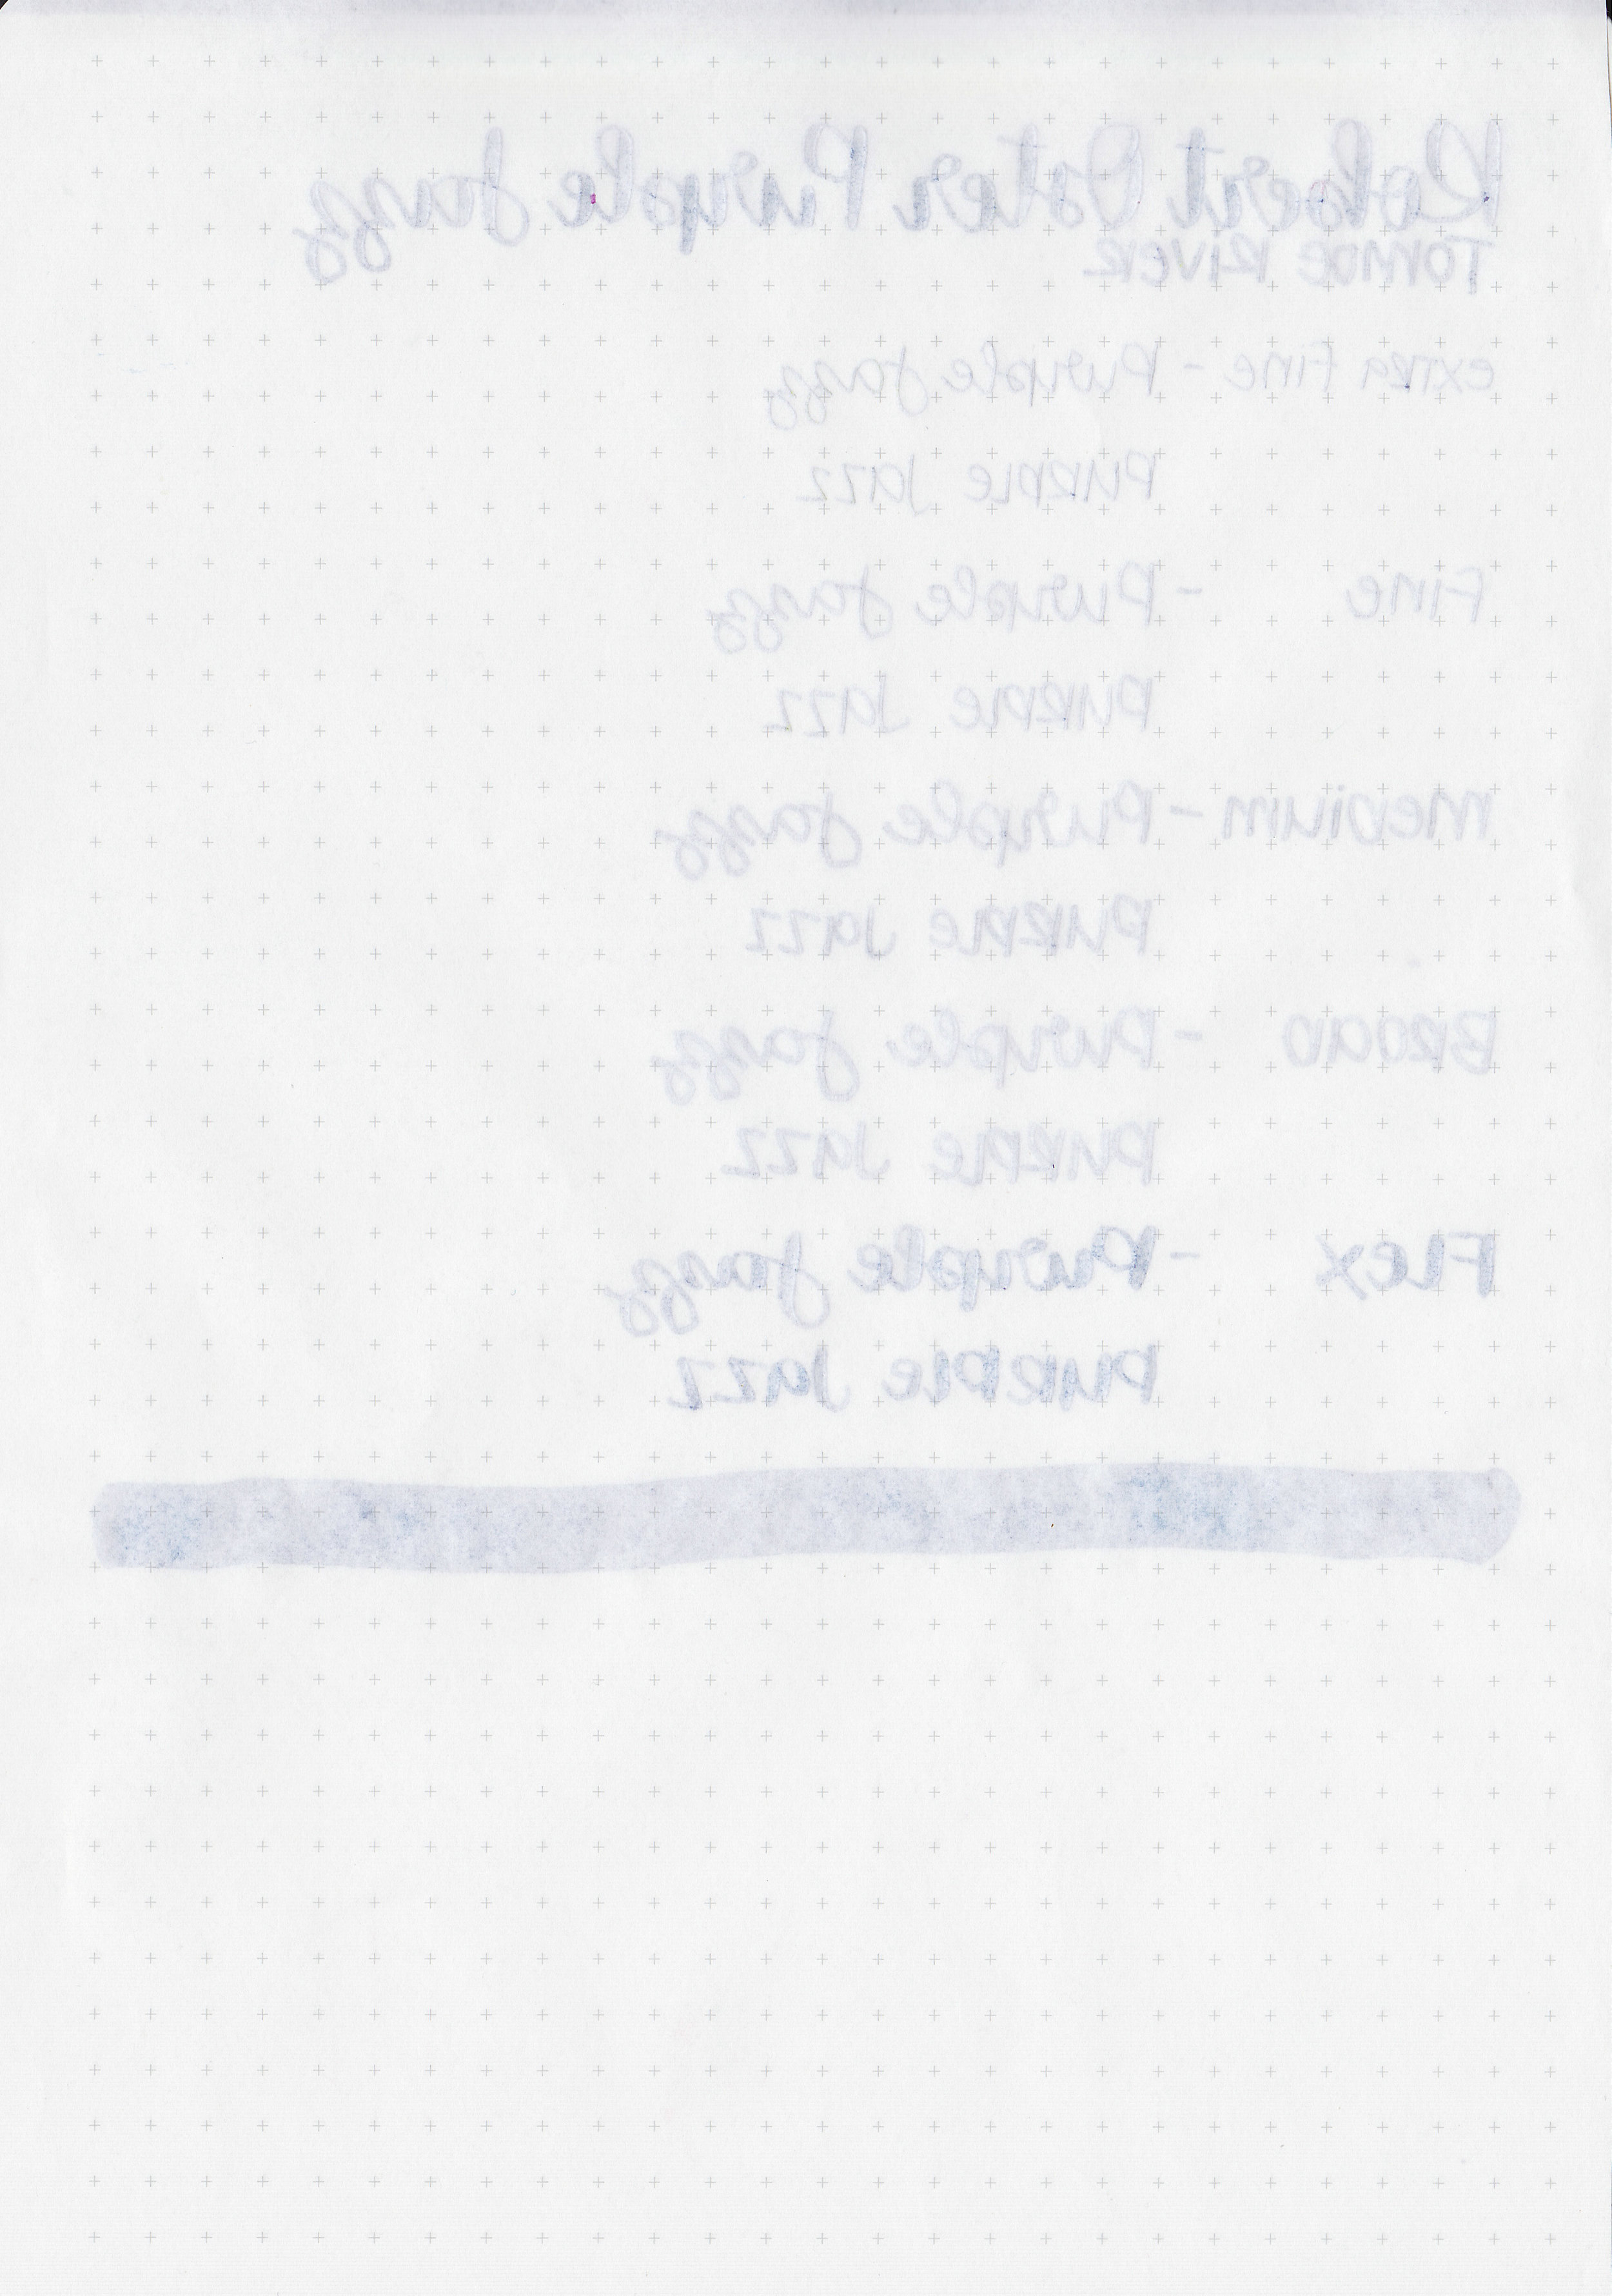 Robert Oster Purple Jazz
Tomoe River
Extra Fine - Purple Jazz
Purple Jazz
Fine - Purple Jazz
Purple Jazz
Medium - Purple Jazz
Purple Jazz
Broad - Purple Jazz
Purple Jazz
Flex - Purple Jazz
Purple Jazz